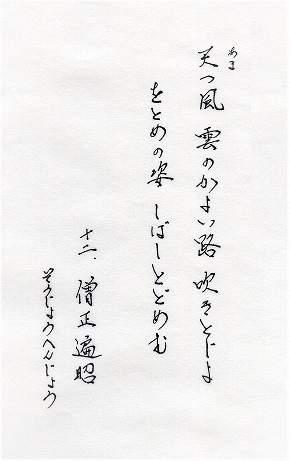 あま
天つ風 雲のかよい路 吹きとじよ
をとめの姿 しばしとどめむ
十二、 僧正遍昭
そうじょうへんじょう